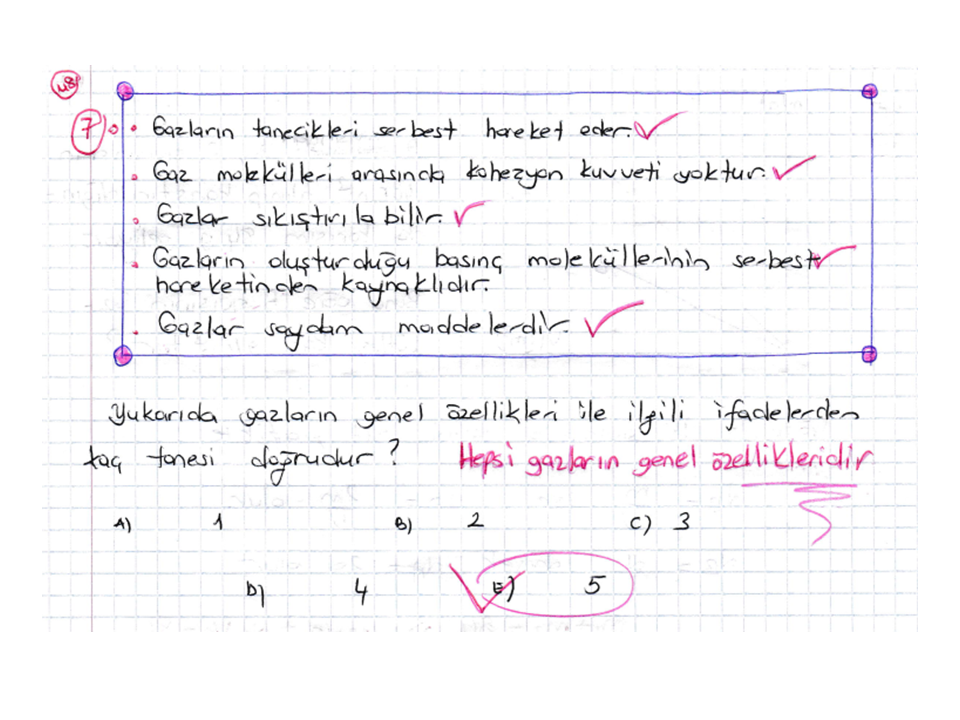 48
7) • Gazların tanecikleri serbest hareket eder.
• Gaz molekülleri arasında kohezyon kuvveti yoktur.
• Gazlar sıkıştırılabilir.
• Gazların oluşturduğu basınç moleküllerinin serbest
hareketinden kaynaklıdır.
• Gazlar saydam maddelerdir.
Yukarıda gazların genel özellikleri ile ilgili ifadelerden
kaç tanesi doğrudur? Hepsi gazların genel özellikleridir
A) 1 B) 2 C) 3
D) 4 E) 5